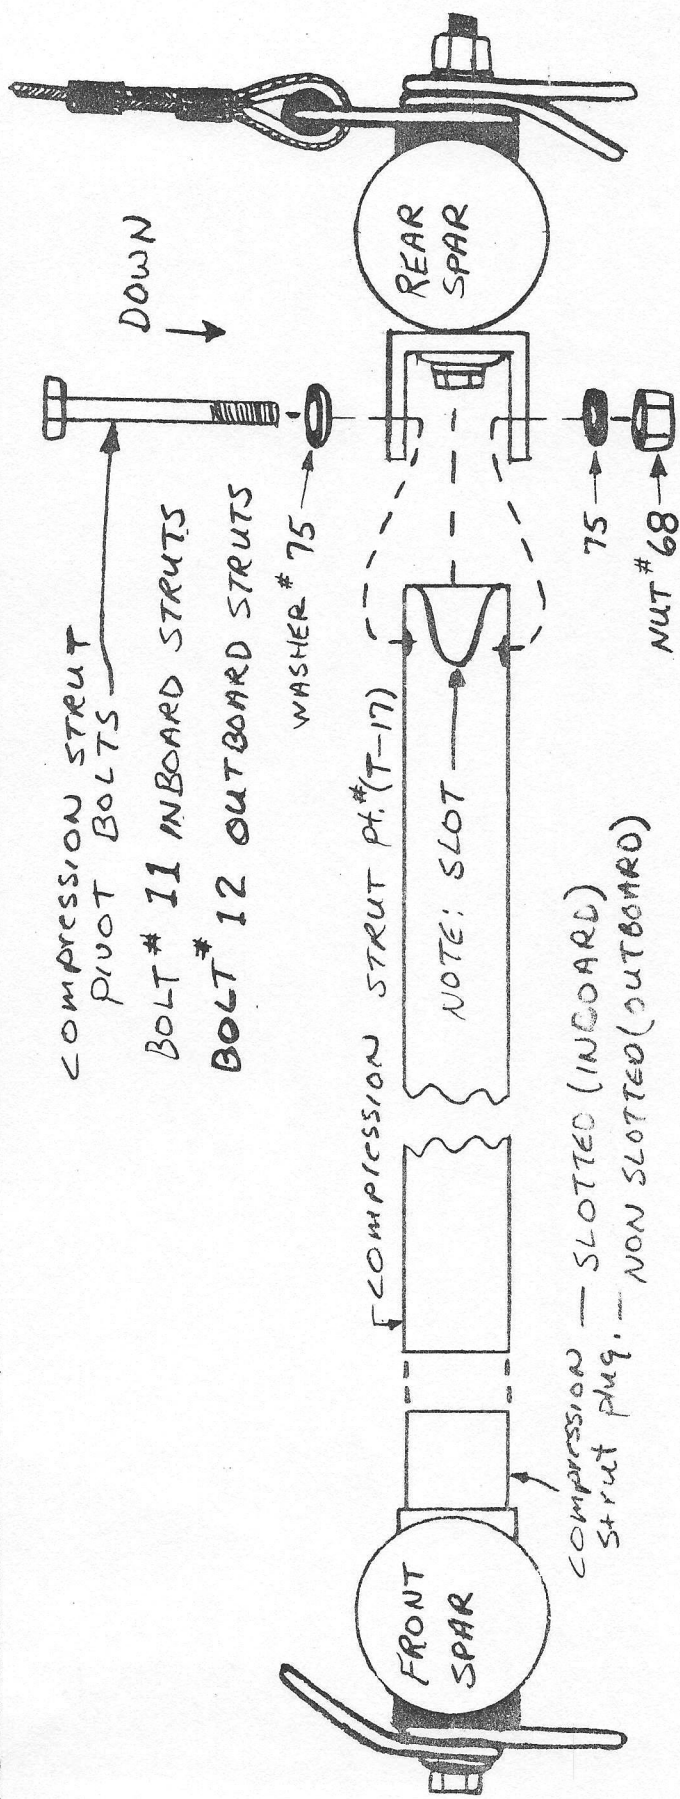 compression STRUT
PIVOT BOLTS
BOLT # 11 INBOARD STRUTS
BOLT # 12 OUTBOARD STRUTS
DOWN
WASHER # 75
75
NUT # 68
REAR
SPAR
COMPRESSION STRUT Pt.# (T-17)
NOTE: SLOT
FRONT
SPAR
COMPRESSION — SLOTTED (INBOARD)
Strut plug. — NON SLOTTED (OUTBOARD)